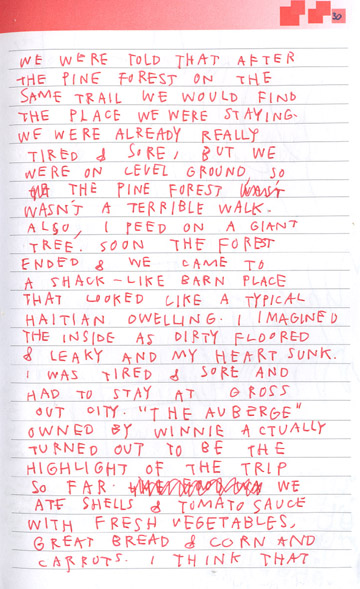 30
WE WERE TOLD THAT AFTER
THE PINE FOREST ON THE
SAME TRAIL WE WOULD FIND
THE PLACE WE WERE STAYING.
WE WERE ALREADY REALLY
TIRED & SORE, BUT WE
WERE ON LEVEL GROUND, SO
THE PINE FOREST
WASN'T A TERRIBLE WALK.
ALSO, I PEED ON A GIANT
TREE. SOON THE FOREST
ENDED & WE CAME TO
A SHACK-LIKE BARN PLACE
THAT LOOKED LIKE A TYPICAL
HAITIAN DWELLING. I IMAGINED
THE INSIDE AS DIRTY FLOORED
& LEAKY AND MY HEART SUNK.
I WAS TIRED & SORE AND
HAD TO STAY AT GROSS
OUT CITY. "THE AUBERGE"
OWNED BY WINNIE ACTUALLY
TURNED OUT TO BE THE
HIGHLIGHT OF THE TRIP
SO FAR. WE
ATE SHELLS & TOMATO SAUCE
WITH FRESH VEGETABLES,
GREAT BREAD & CORN AND
CARROTS. I THINK THAT